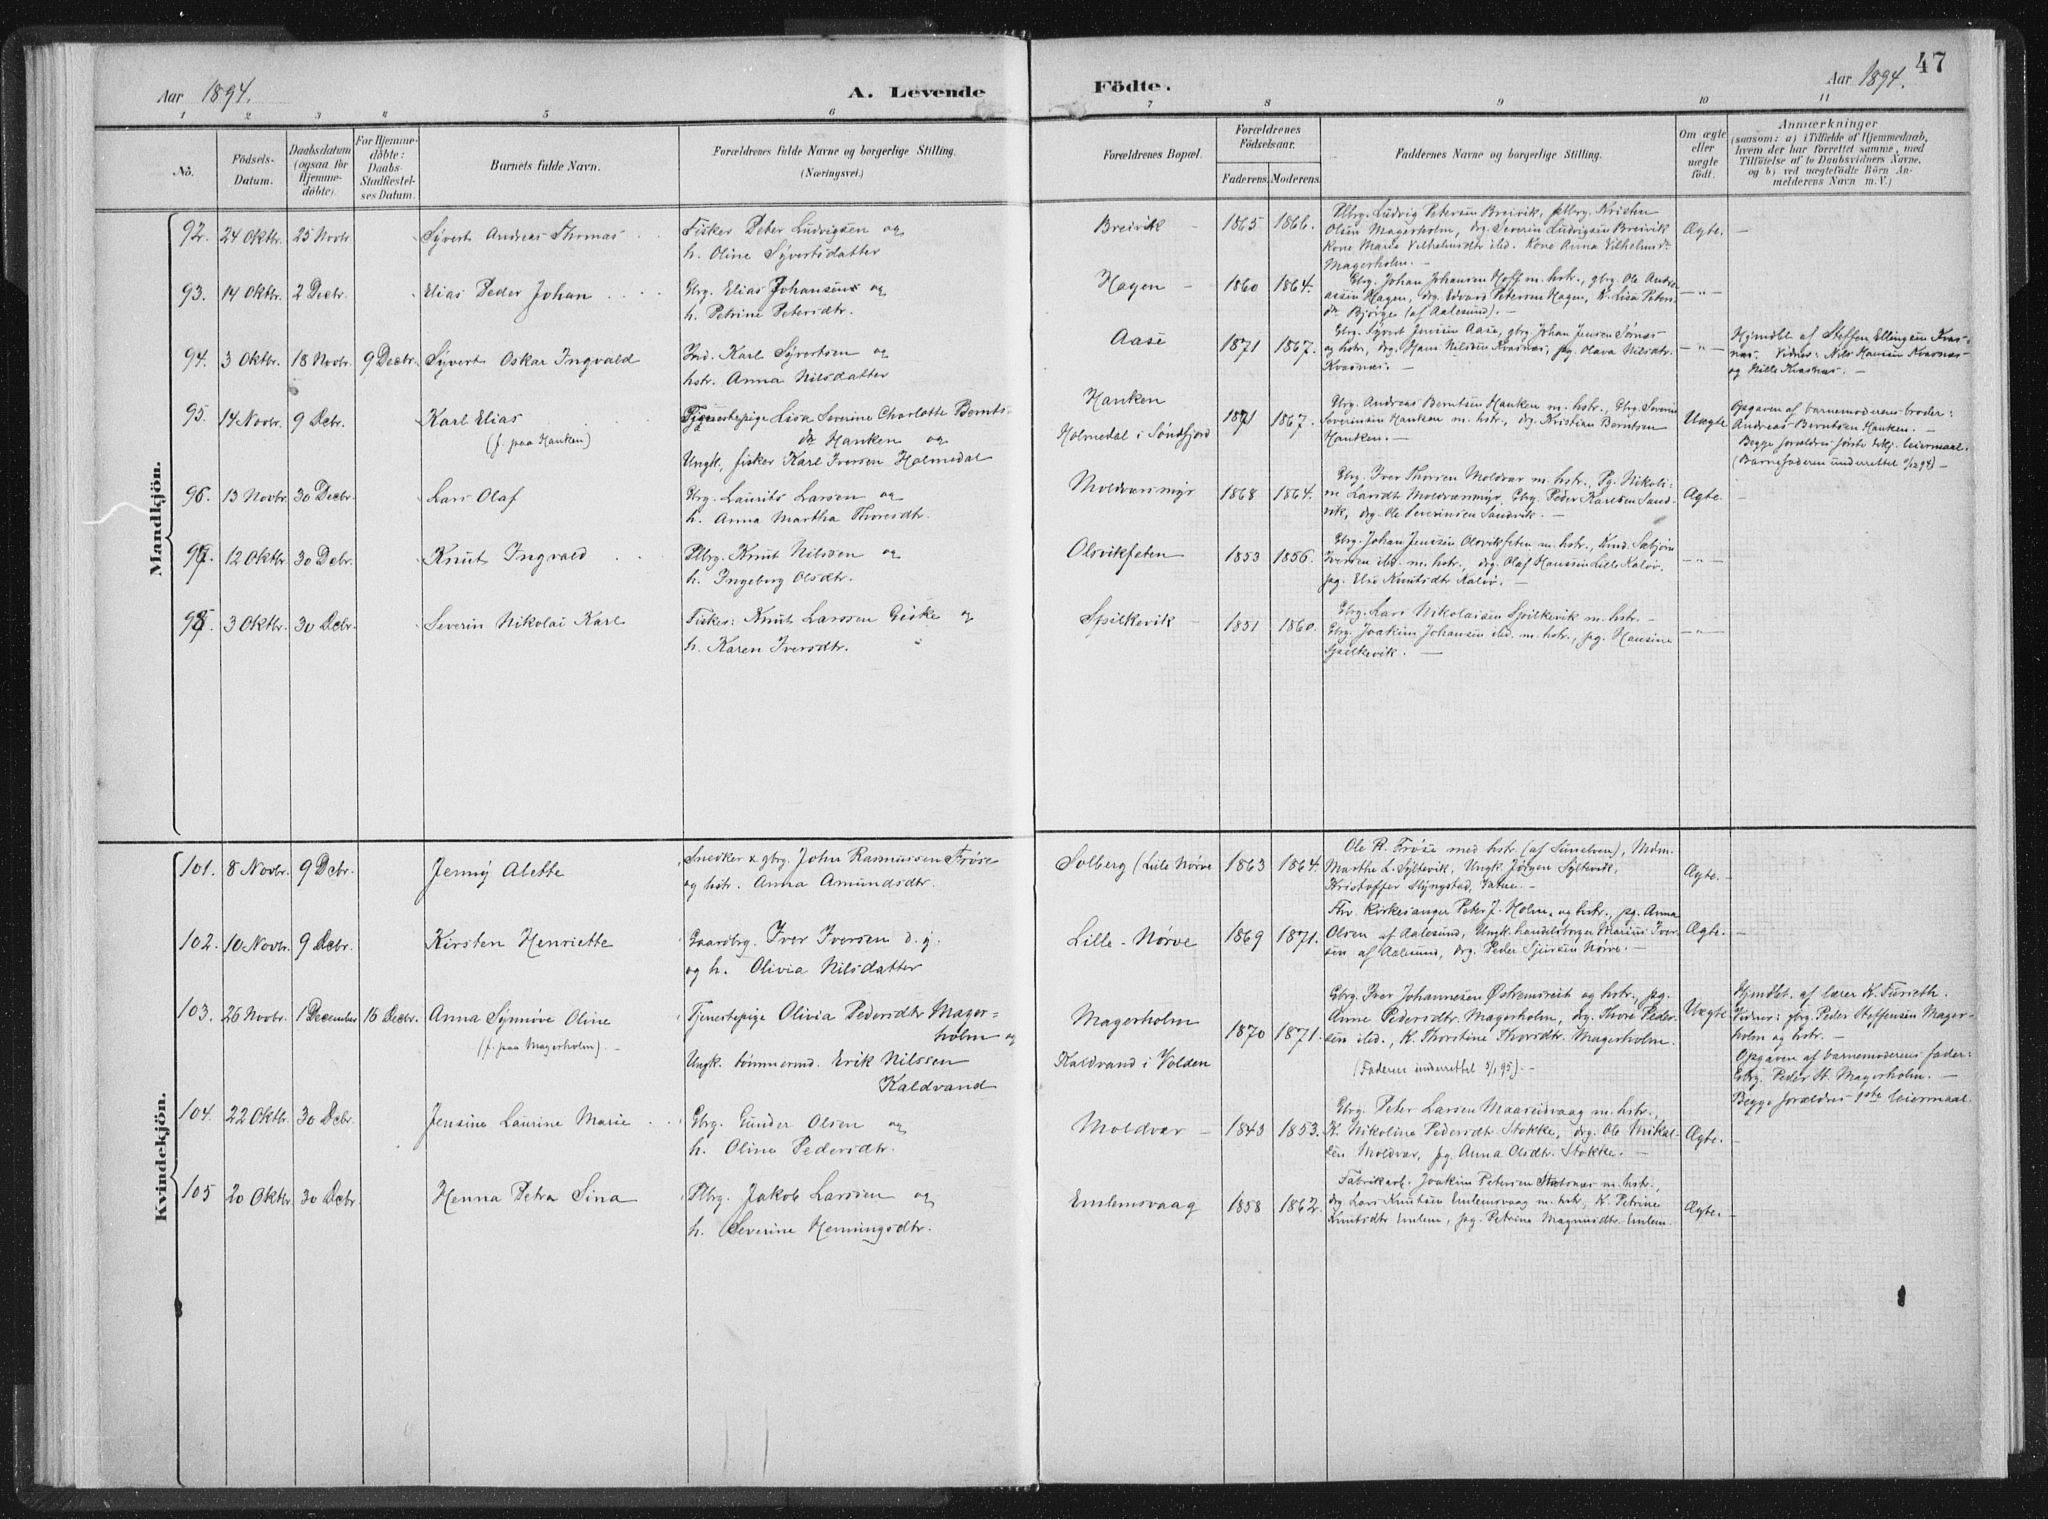 Aar 1894.
A. Levende
Födte.
Aar 1894.
47
1 2 3 4 5 6 7 8 9 10 11
No.
Födsels-Datum.
Daabsdatum (ogsaa for Hjemme-döbte).
For Hjemme-döbte: Daabs-Stadfæstel-ses Datum.
Barnets fulde Navn.
Forældrenes fulde Navne og borgerlige Stilling.
(Næringsvei.)
Forældrenes Bopæl.
Forældrenes Födselsaar.
Faderens. Moderens.
Faddernes Navne og borgerlige Stilling.
Om ægte eller uægte födt.
Anmærkninger
(saasom: a) i Tilfælde af Hjemmedaab, hvem der har forrettet samme, med Tilföielse af to Daabsvidners Navne, og b) ved uægtefödte Börn Anmelderens Navn m. V.)
Mandkjön.
92. 24 Oktbr. 25 Novbr. Sÿvert Andreas Thomas
Fisker Peter Ludvigsen og
h. Oline Sÿvertsdatter
Breivik 1865 1866.
Plbrg. Ludvig Petersen Breivik, plbrg. Kristen
Olsen Magerholm, drg. Severin Ludvigsen Breivik
Kone Marie Vilhelmsdtr ibd. Kone Anna Vilhelmsdr
Magerholm. —
Ægte. —
93. 14 Oktbr. 2 Decbr. Elias Peder Johan
Gbrg. Elias Johansens og
h. Petrine Petersdtr.
Hagen 1860 1864.
Gbrg. Johan Johansen Hoff m. hstr., gbrg. Ole Andre-
assen Hagen, drg. Edvard Petersen Hagen, K. Lisa Peters-
dr Bjørge (af Aalesund). —
—"—
94. 3 Oktbr. 18 Novbr. 9 Decbr. Sÿvert Oskar Ingvald
Ind. Karl Sÿvertsen og
hstr. Anna Nilsdatter
Aase 1871 1867.
Gbrg. Sÿvert Jensen Aase, gbrg. Johan Jensen Sørnes
og hstr., drg. Hans Nilsen Kvasnæs, pg. Olava Nilsdtr.
Kvasnæs. —
—"—
Hjmdbt af Steffen Ellingsen Kvas-
næs. Vidner: Nils Hansen Kvasnæs
og Nille Kvasnæs. —
95. 14 Novbr. 9 Dcbr. Karl Elias
(f. paa Hanken)
Tjenestepige Lisa Severine Charlotte Bernts-
dr Hanken og
Ungk. fisker Karl Iversen Holmedal
Hanken
Holmedal i Søndfjord
1871 1867.
Gbrg. Andreas Berntsen Hanken m. hstr., Gbrg. Severin
Severinsen Hanken m. hstr., drg. Kristian Berntsen
Hanken. —
Uægte
Opgaven af barnemoderens broder:
Andreas Berntsen Hanken. —
Begge forældres første leiermaal.
(Barnefaderen underrettet
96. 13 Novbr. 30 Decbr. Lars Olaf
Gbrg. Laurits Larsen og
h. Anna Martha Thoresdtr.
Moldværsmÿr 1868 1864.
Gbrg. Iver Thorsen Moldvær m. hstr., Pg. Nikoli-
ne Larsdt Moldværsmÿr, Gbrg. Peder Karlsen Sand-
vik, drg. Ole Severinsen Sandvik. —
Ægte —
97. 12 Oktbr. 30 Dcbr. Knut Ingvald
Plbrg. Knut Nilssen og
h. Ingeborg Olsdtr.
Olsvikfeten 1853 1856.
Gbrg. Johan Jenssen Olsvikfeten m. hstr.,
Iversen ibd. m. hstr., drg. Olaf Hanssen Lille Kalvø,
pg. Else Knutsdt Kalvø. —
—"—
98. 3 Oktbr. 30 Dcbr. Severin Nikolai Karl
Fisker: Knut Larssen Giske og
h. Karen Iversdtr.
Spilkevik 1851 1860.
Gbrg. Lars Nikolaisen Spilkevik m. hstr. —
Gbrg. Joakim Johansen ibd. m. hstr., pg. Hansine
Spilkevik. —
—"—
Kvindekjön.
101. 8 Novbr. 9 Dcbr. Jenny Alette
Snedker & gbrg. John Rasmussen Frøse
og hstr. Anna Amundsdtr.
Solberg (Lille Nørve 1863 1864.
Ole R. Frøse med hstr. (af Sunelven), Mdm.
Marthe L. Sÿltevik, Ungk. Jørgen Sÿltevik,
Kristoffer Slÿngstad, Vatne. —
Ægte. —
102. 10 Novbr. 9 Dcbr. Kirsten Henriette
Gaardbrg. Iver Iversen d. y.
og h. Olivia Nilsdatter
Lille-Nørve 1869 1871.
Fhv. Kirkesanger Peter J. Holm, og hstr., pg. Anna
Olsen af Aalesund, Ungk. handelsborger Marius Iver-
sen af Aalesund, drg. Peder Sjursen Nørve. —
Ægte. —
103. 26 Novbr. 1 December 16 Decbr. Anna Sÿnnøve Oline
(f. paa Magerholm). —
Tjenestepige Olivia Pedersdtr Mager-
holm og
Ungk. tømmermd. Erik Nilssen
Kaldvand
Magerholm
Kaldvand i Volden
1870 1871.
Gbrg. Iver Johannesen Østremsreit og hstr., pg.
Anne Pedersdtr Magerholm, drg. Thore Peder-
sen ibd., K. Thorstine Thorsdtr. Magerholm.
(Faderen underrettet 5/1 95). —
Uægte
Hjmdbt. af lærer K. Furseth.
Vidner: gbrg. Peder Steffensen Mager-
holm og hstr. —
Opgaven af barnemoderens fader:
Gbrg. Peder St. Magerholm. —
Begge forældres 1ste leiermaal.
104. 22 Oktbr. 30 Dcbr. Jensine Laurine Marie
Gbrg. Gunder Olsen og
h. Oline Pedersdtr.
Moldvær 1843 1853.
Gbrg. Peter Larsen Maaseidvaag m. hstr.,
K. Nikoline Pedersdtr Stokke, drg. Ole Mikal-
sen Moldvær, pg. Anna Olsdtr. Stokke. —
Ægte. —
105 20 Oktbr. 30 Dcbr Henna Petra Sina
Plbrg. Jakob Larssen og
h. Severine Henningsdtr.
Emlemsvaag 1858 1862.
Fabrikarb. Joakim Petersen m. hstr.,
drg. Lars Knutsen Emlemsvaag m. hstr., K. Petrine
Knutsdtr Emlem, pg. Petrine Magnusdtr. Emlem.
Ægte. —